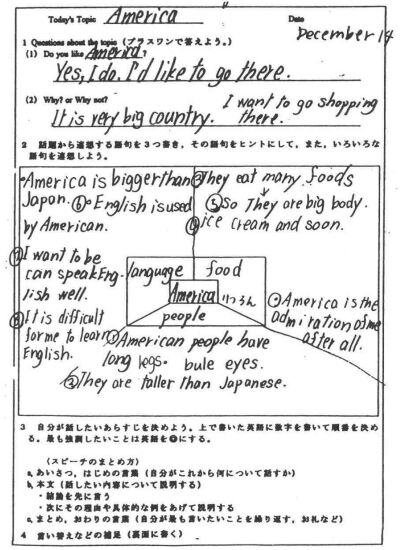 Today's Topic America Date December 14
1 Questions about the topic（プラスワンで答えよう。）
(1) Do you like America?
Yes, I do. I'd like to go there.
(2) Why? or Why not? I want to go shopping
It is very big country. there.
2 話題から連想する語句を３つ書き、その語句をヒントにして、また、いろいろな
語句を連想しよう。
America is bigger than
Japan. ⑥ English is used
by American.
They eat many foods
⑤ So They are big body.
④ ice cream and soon.
⑦ I want to be
can speak Eng-
lish well.
⑧ It is difficult
for me to learn
English.
language food
America
people
America is the
admiration of me
after all.
① American people have
long legs. bule eyes.
② They are taller than Japanese.
3 自分が話したいあらすじを決めよう。上で書いた英語に数字を書いて順番を決め
る。最も強調したいことは英語を◎にする。
（スピーチのまとめ方）
a, あいさつ、はじめの言葉（自分がこれから何について話すか）
b, 本文（話したい内容について説明する）
・結論を先に言う
・次にその理由や具体的な例をあげて説明する
c, まとめ、おわりの言葉（自分が最も言いたいことを繰り返す、お礼など）
4 言い替えなどの補足（裏面に書く）